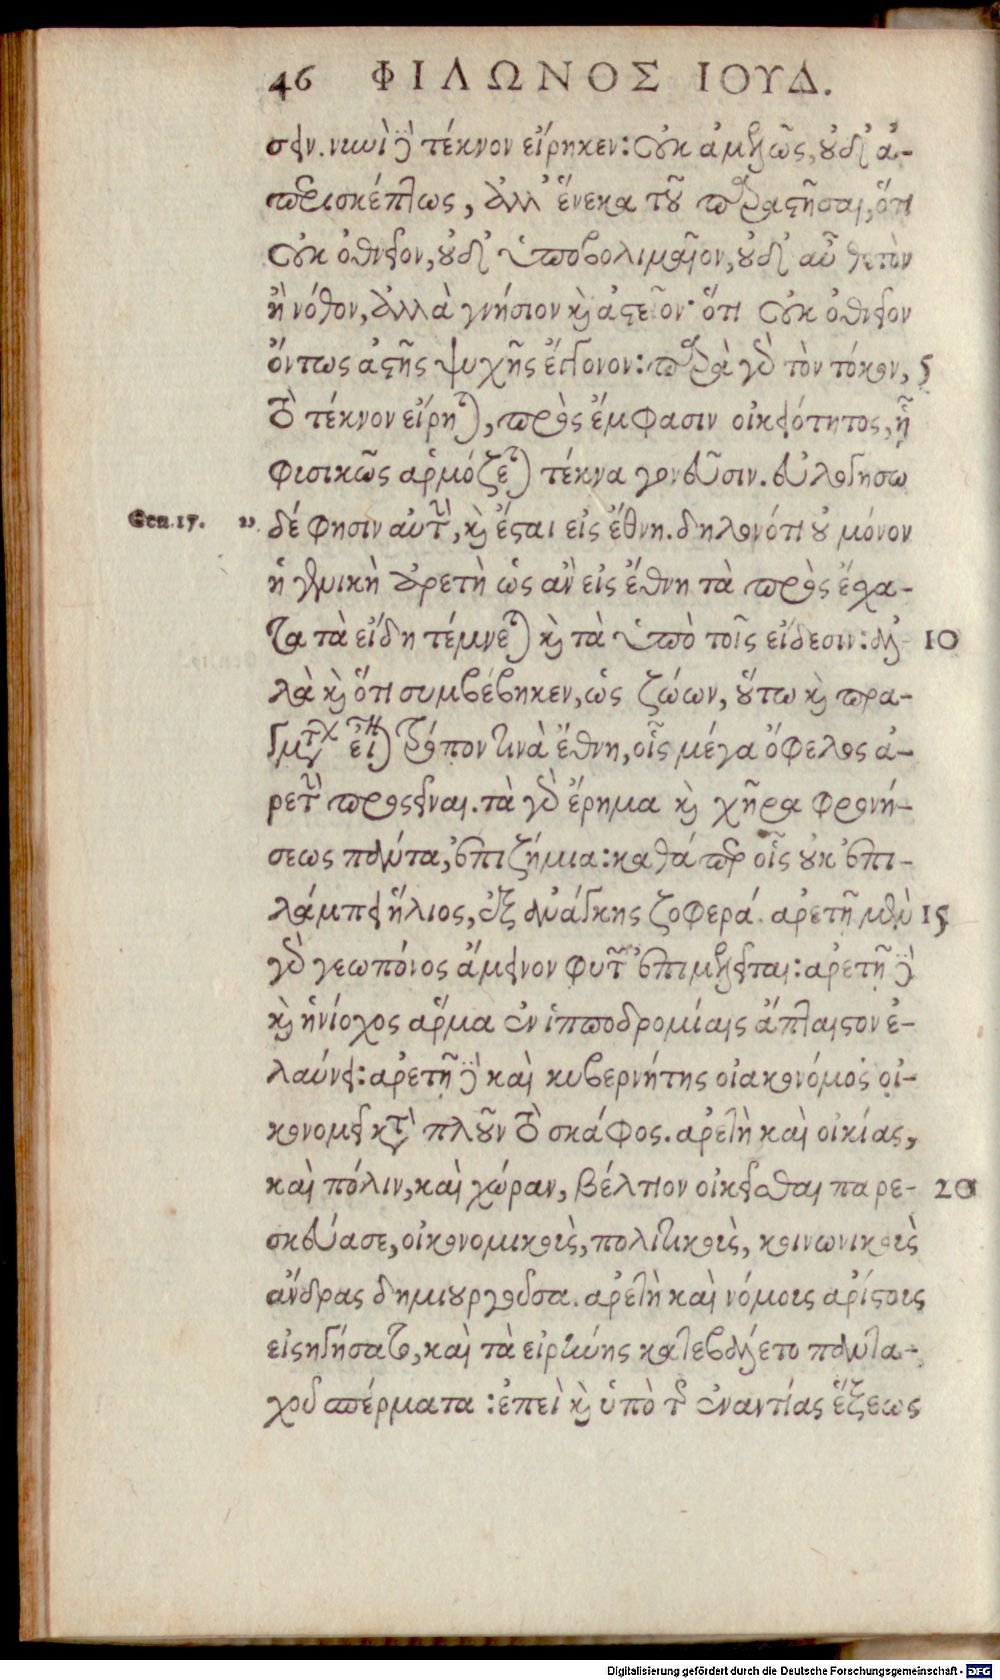 46 ΦΙΛΩΝΟΣ ΙΟΥΔ.
σειν. νυνὶ δὲ τέκνον εἴρηκεν: οὐκ ἀμελῶς, οὐδ' ἀ-
περισκέπτως, ἀλλ' ἕνεκα τοῦ παραστῆσαι, ὅτι
οὐκ ὀθνεῖον, οὐδ' ὑποβολιμαῖον, οὐδ' αὖ θετὸν
ἢ νόθον, ἀλλὰ γνήσιον καὶ ἀστεῖον· ὅτι οὐκ ὀθνεῖον
ὄντως ἀστῆς ψυχῆς ἔγγονον: παρὰ γὰρ τὸν τόκον, 5
τὸ τέκνον εἴρηται, πρὸς ἔμφασιν οἰκειότητος, ᾗ
φισικῶς ἁρμόζεται τέκνα γονεῦσιν. εὐλογήσω
Gen. 17. „ δέ φησιν αὐτὴν, καὶ ἔσται εἰς ἔθνη. δηλονότι οὐ μόνον
ἡ γενικὴ ἀρετὴ ὡς ἂν εἰς ἔθνη τὰ πρὸς ἔσχα-
τα τὰ εἴδη τέμνεται καὶ τὰ ὑπὸ τοῖς εἴδεσιν: ἀλ- 10
λὰ καὶ ὅτι συμβέβηκεν, ὡς ζώων, οὕτω καὶ πρα-
γμάτων εἶναι τρόπον τινὰ ἔθνη, οἷς μέγα ὄφελος ἀ-
ρετὴν προσεῖναι. τὰ γὰρ ἔρημα καὶ χῆρα φρονή-
σεως πάντα, ἐπιζήμια: καθάπερ οἷς οὐκ ἐπι-
λάμπει ἥλιος, ἐξ ἀνάγκης ζοφερά. ἀρετῇ μὲν 15
γὰρ γεωπόνος ἄμεινον φυτῶν ἐπιμελεῖται: ἀρετῇ δὲ
καὶ ἡνίοχος ἅρμα ἐν ἱπποδρομίαις ἄπταιστον ἐ-
λαύνει: ἀρετῇ δὲ καὶ κυβερνήτης οἰακονόμος οἰ-
κονομεῖ κατὰ πλοῦν τὸ σκάφος. ἀρετὴ καὶ οἰκίας,
καὶ πόλιν, καὶ χώραν, βέλτιον οἰκεῖσθαι παρε- 20
σκεύασε, οἰκονομικοὺς, πολιτικοὺς, κοινωνικοὺς
ἄνδρας δημιουργοῦσα. ἀρετὴ καὶ νόμους ἀρίστους
εἰσηγήσατο, καὶ τὰ εἰρήνης κατεβάλετο πάντα-
χοῦ σπέρματα: ἐπεὶ καὶ ὑπὸ τῆς ἐναντίας ἕξεως
Digitalisierung gefördert durch die Deutsche Forschungsgemeinschaft - DFG